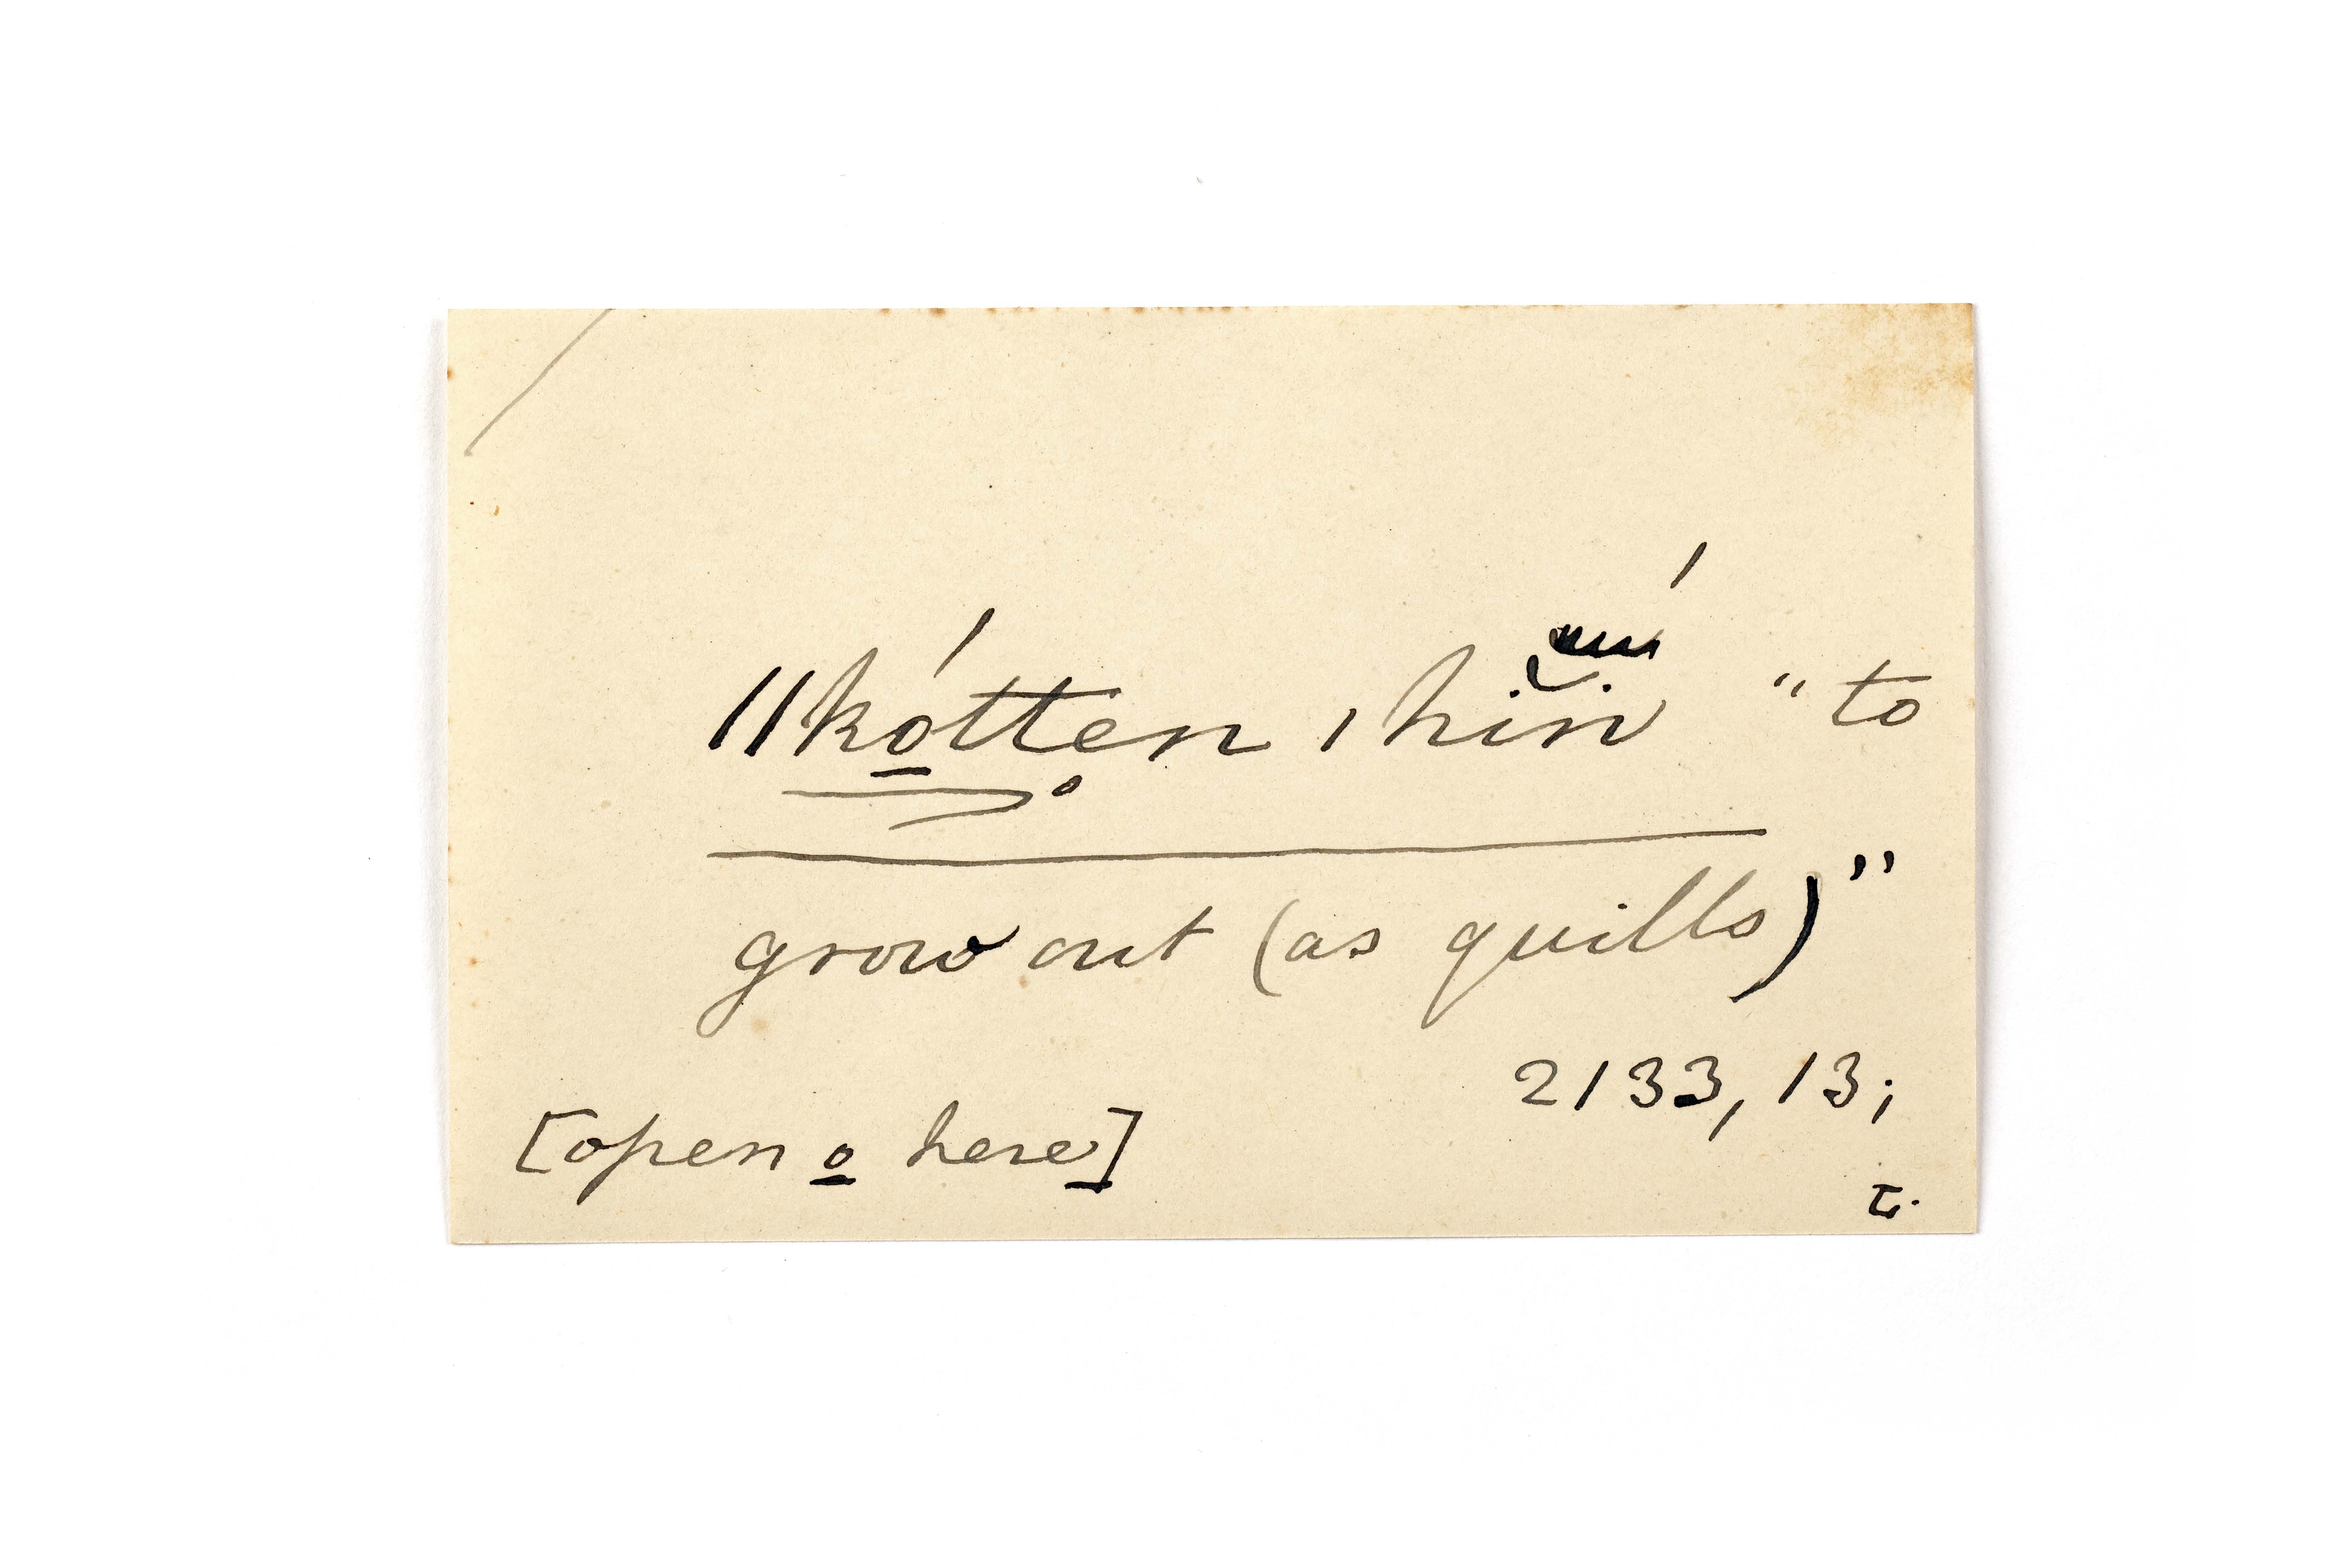 ǁkó̱tten ǀhĭń "to
grow out (as quills)"
2133, 13;
[open o̱ here]